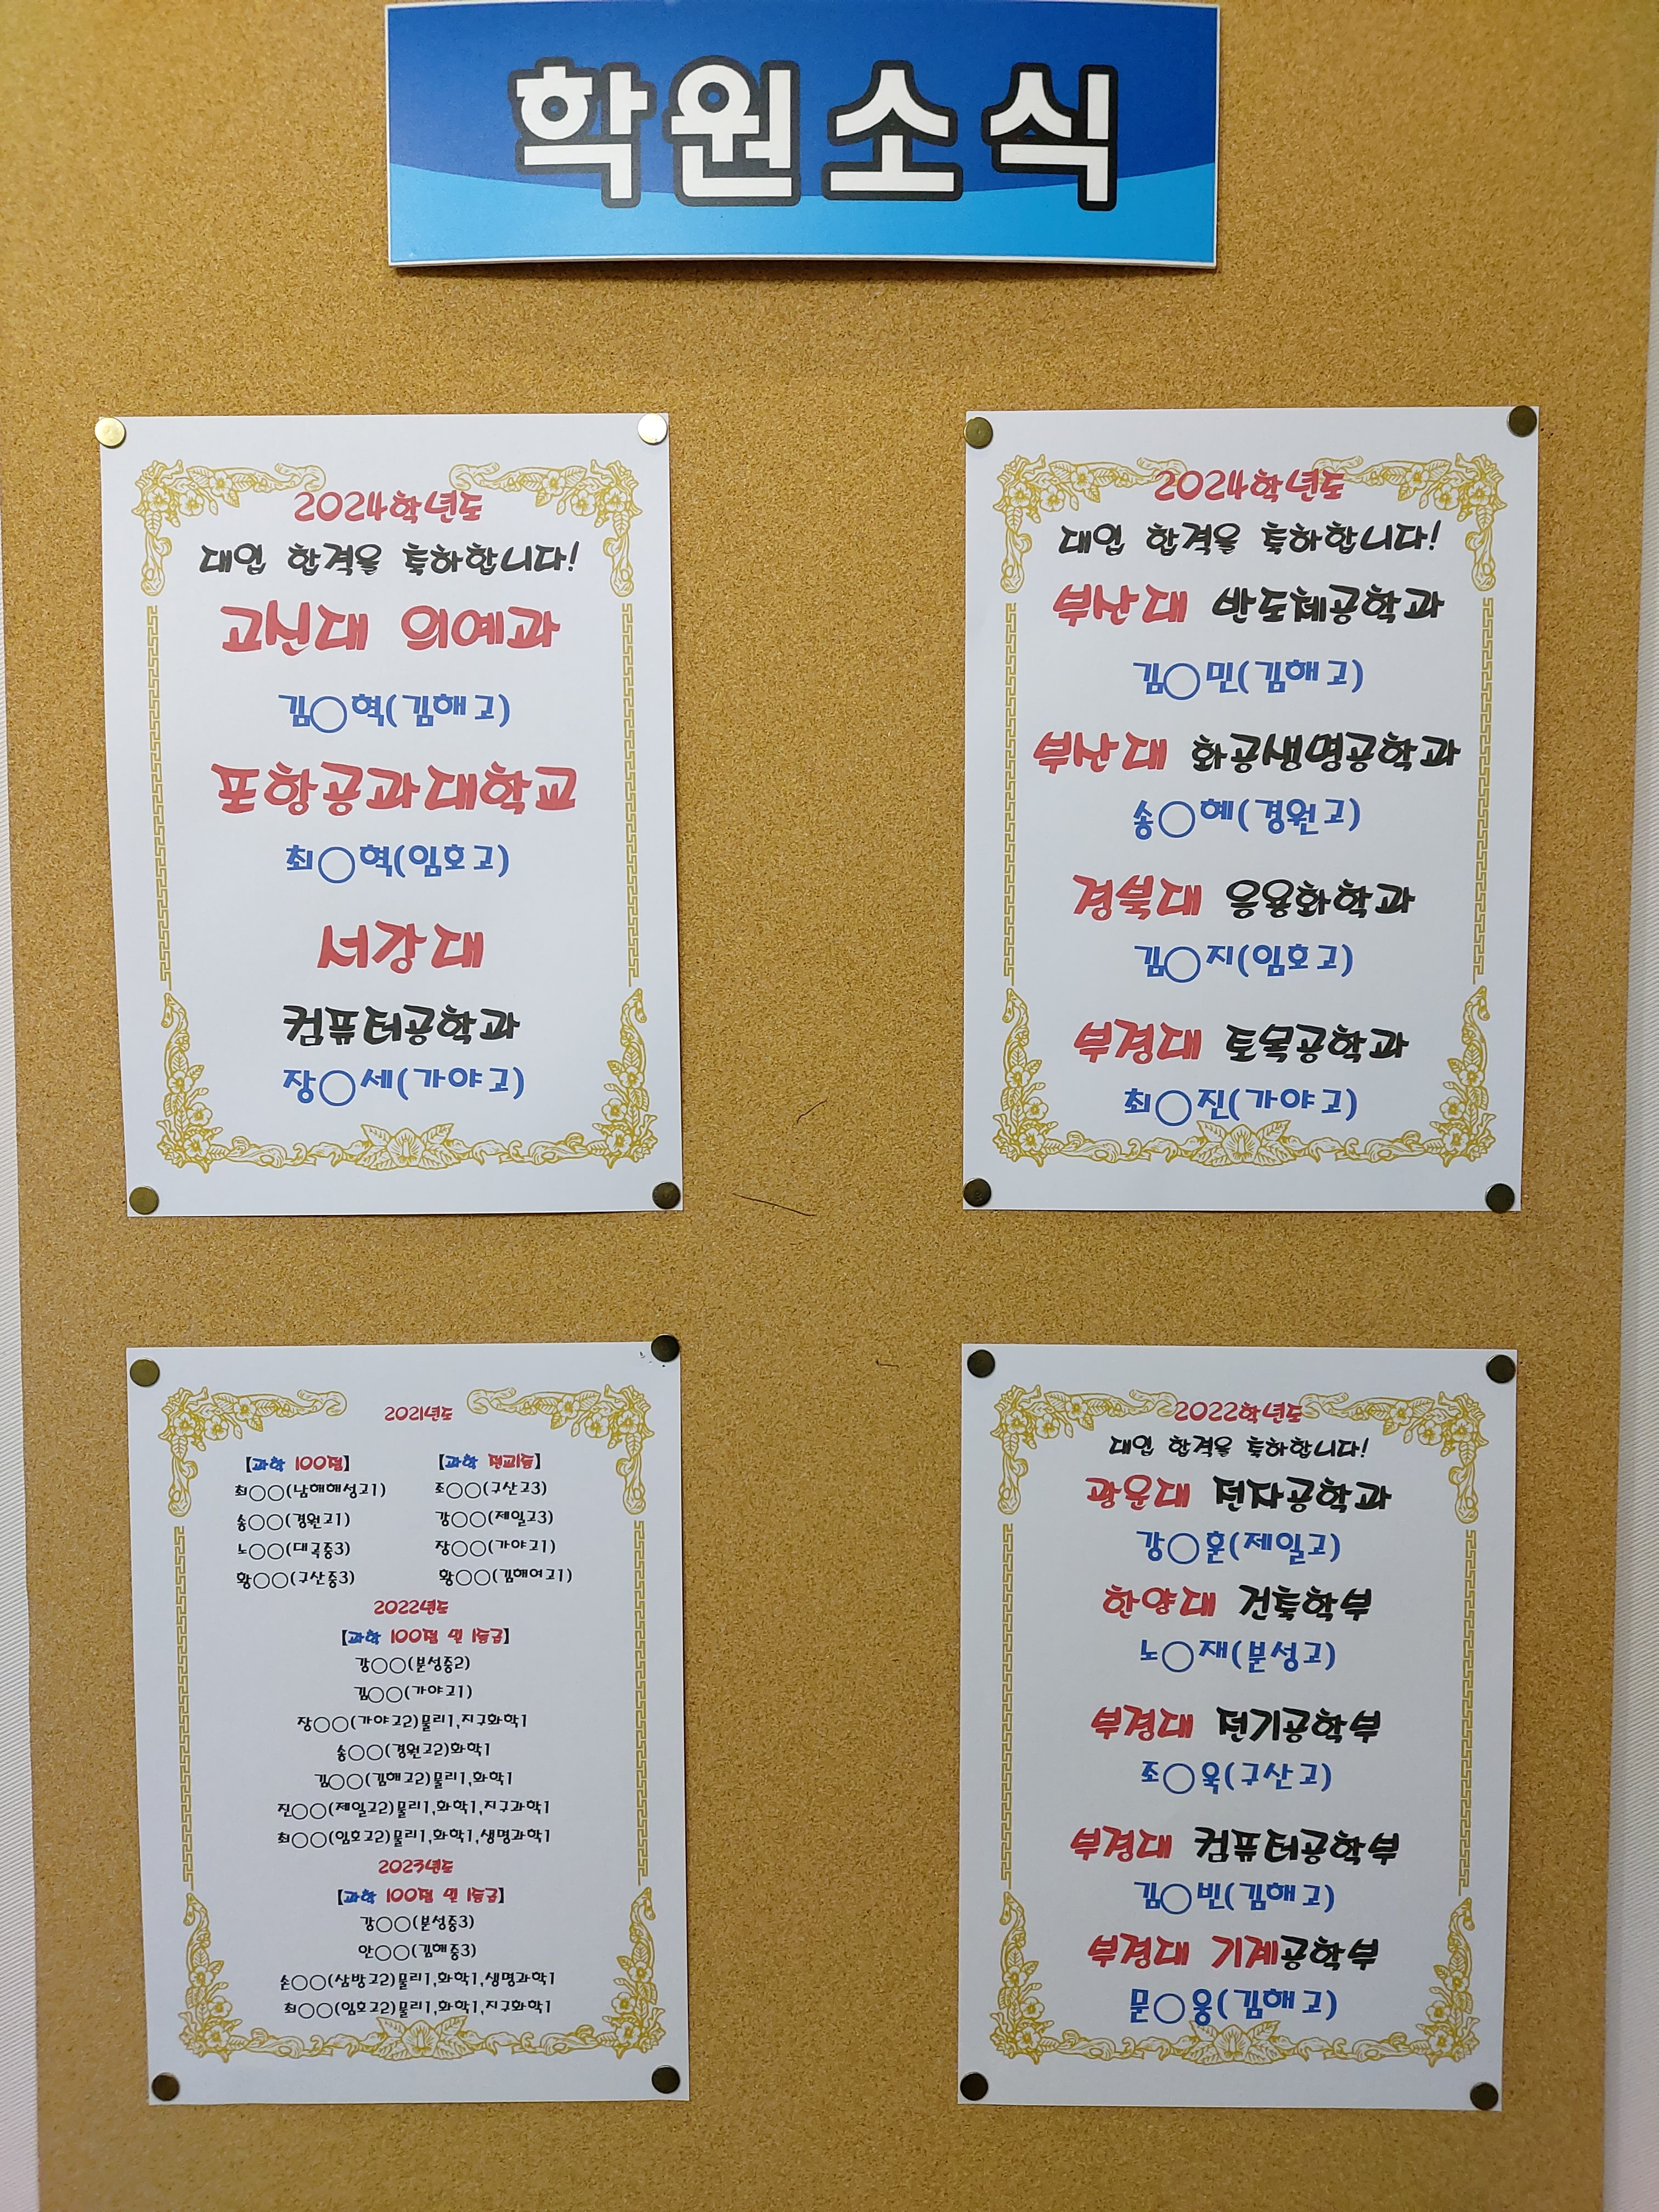 학원소식
2024학년도
대입 합격을 축하합니다!
고신대 의예과
김○혁(김해고)
포항공과대학교
최○혁(임호고)
서강대
컴퓨터공학과
장○세(가야고)
2024학년도
대입 합격을 축하합니다!
부산대 반도체공학과
김○민(김해고)
부산대 화공생명공학과
송○혜(경원고)
경북대 응용화학과
김○지(임호고)
부경대 토목공학과
최○진(가야고)
2021년도
【과학 100점】 【과학 전교1등】
최○○(남해해성고1) 조○○(구산고3)
송○○(경원고1) 강○○(제일고3)
노○○(대곡중3) 장○○(가야고1)
황○○(구산중3) 황○○(김해여고1)
2022년도
【과학 100점 및 1등급】
강○○(분성중2)
김○○(가야고1)
장○○(가야고2)물리1,지구화학1
송○○(경원고2)화학1
김○○(김해고2)물리1,화학1
진○○(제일고2)물리1,화학1,지구과학1
최○○(임호고2)물리1,화학1,생명과학1
2023년도
【과학 100점 및 1등급】
강○○(분성중3)
안○○(김해중3)
손○○(삼방고2)물리1,화학1,생명과학1
최○○(임호고2)물리1,화학1,지구화학1
2022학년도
대입 합격을 축하합니다!
광운대 전자공학과
강○훈(제일고)
한양대 건축학부
노○재(분성고)
부경대 전기공학부
조○욱(구산고)
부경대 컴퓨터공학부
김○빈(김해고)
부경대 기계공학부
문○웅(김해고)